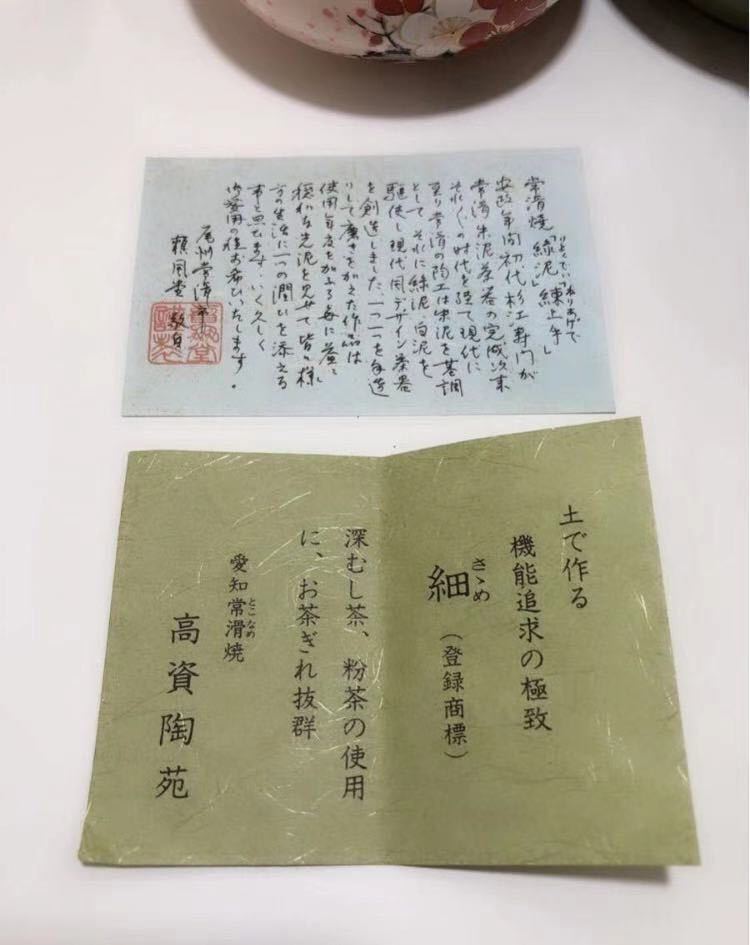 常滑焼「緑泥」「練上手」
りょくでい ねりあげで
安政年間初代杉江寿門が
常滑朱泥茶器の完成以来
それぞれの時代を経て現代に
至り常滑の陶工は朱泥を基調
として それに緑泥、白泥を
駆使し現代風デザイン茶器
を創造しました 一つ一つを手造
りして磨きをかえた作品は
使用年度を加ふる毎に益々
穏和な光沢を見せて皆々様
方の生活に一つの潤ひを添える
事と思ひます いく久しく
御愛用の程お希ひいたします。
尾州常滑市
敬白
土で作る
機能追求の極致
細
さゝめ
(登録商標)
深むし茶、粉茶の使用
に、お茶ぎれ抜群
愛知常滑焼
とこなめ
高資陶苑